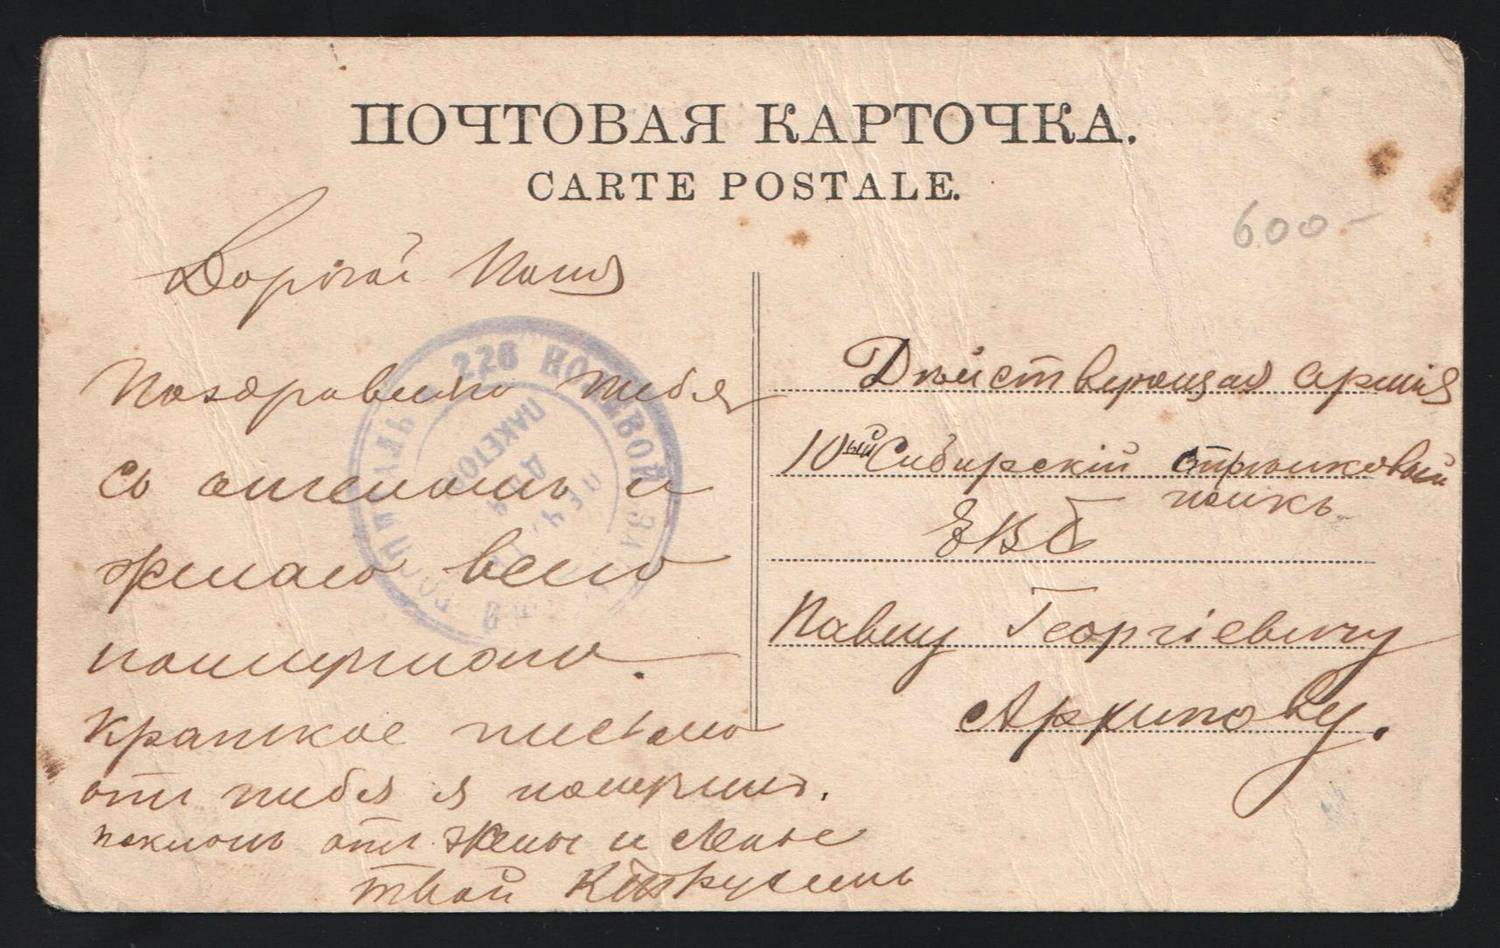 ПОЧТОВАЯ КАРТОЧКА.
CARTE POSTALE.
600-
Дорогой Паша
Поздравляю тебя
съ ангеломъ и
желаю всего
наилучшаго.
Краткое письмо
отъ тебя я получилъ.
поклонъ отъ Жени и
твой
228 ПОЛЕВОЙ ЗА
ГОСПИТАЛЬ
ДЛЯ
ПАКЕТОВ
ПЕЧ.
Дѣйствующая армія
10ый Сибирскій стрѣлковый
полкъ
ЕВБ
Павлу Георгіевичу
Архипову.